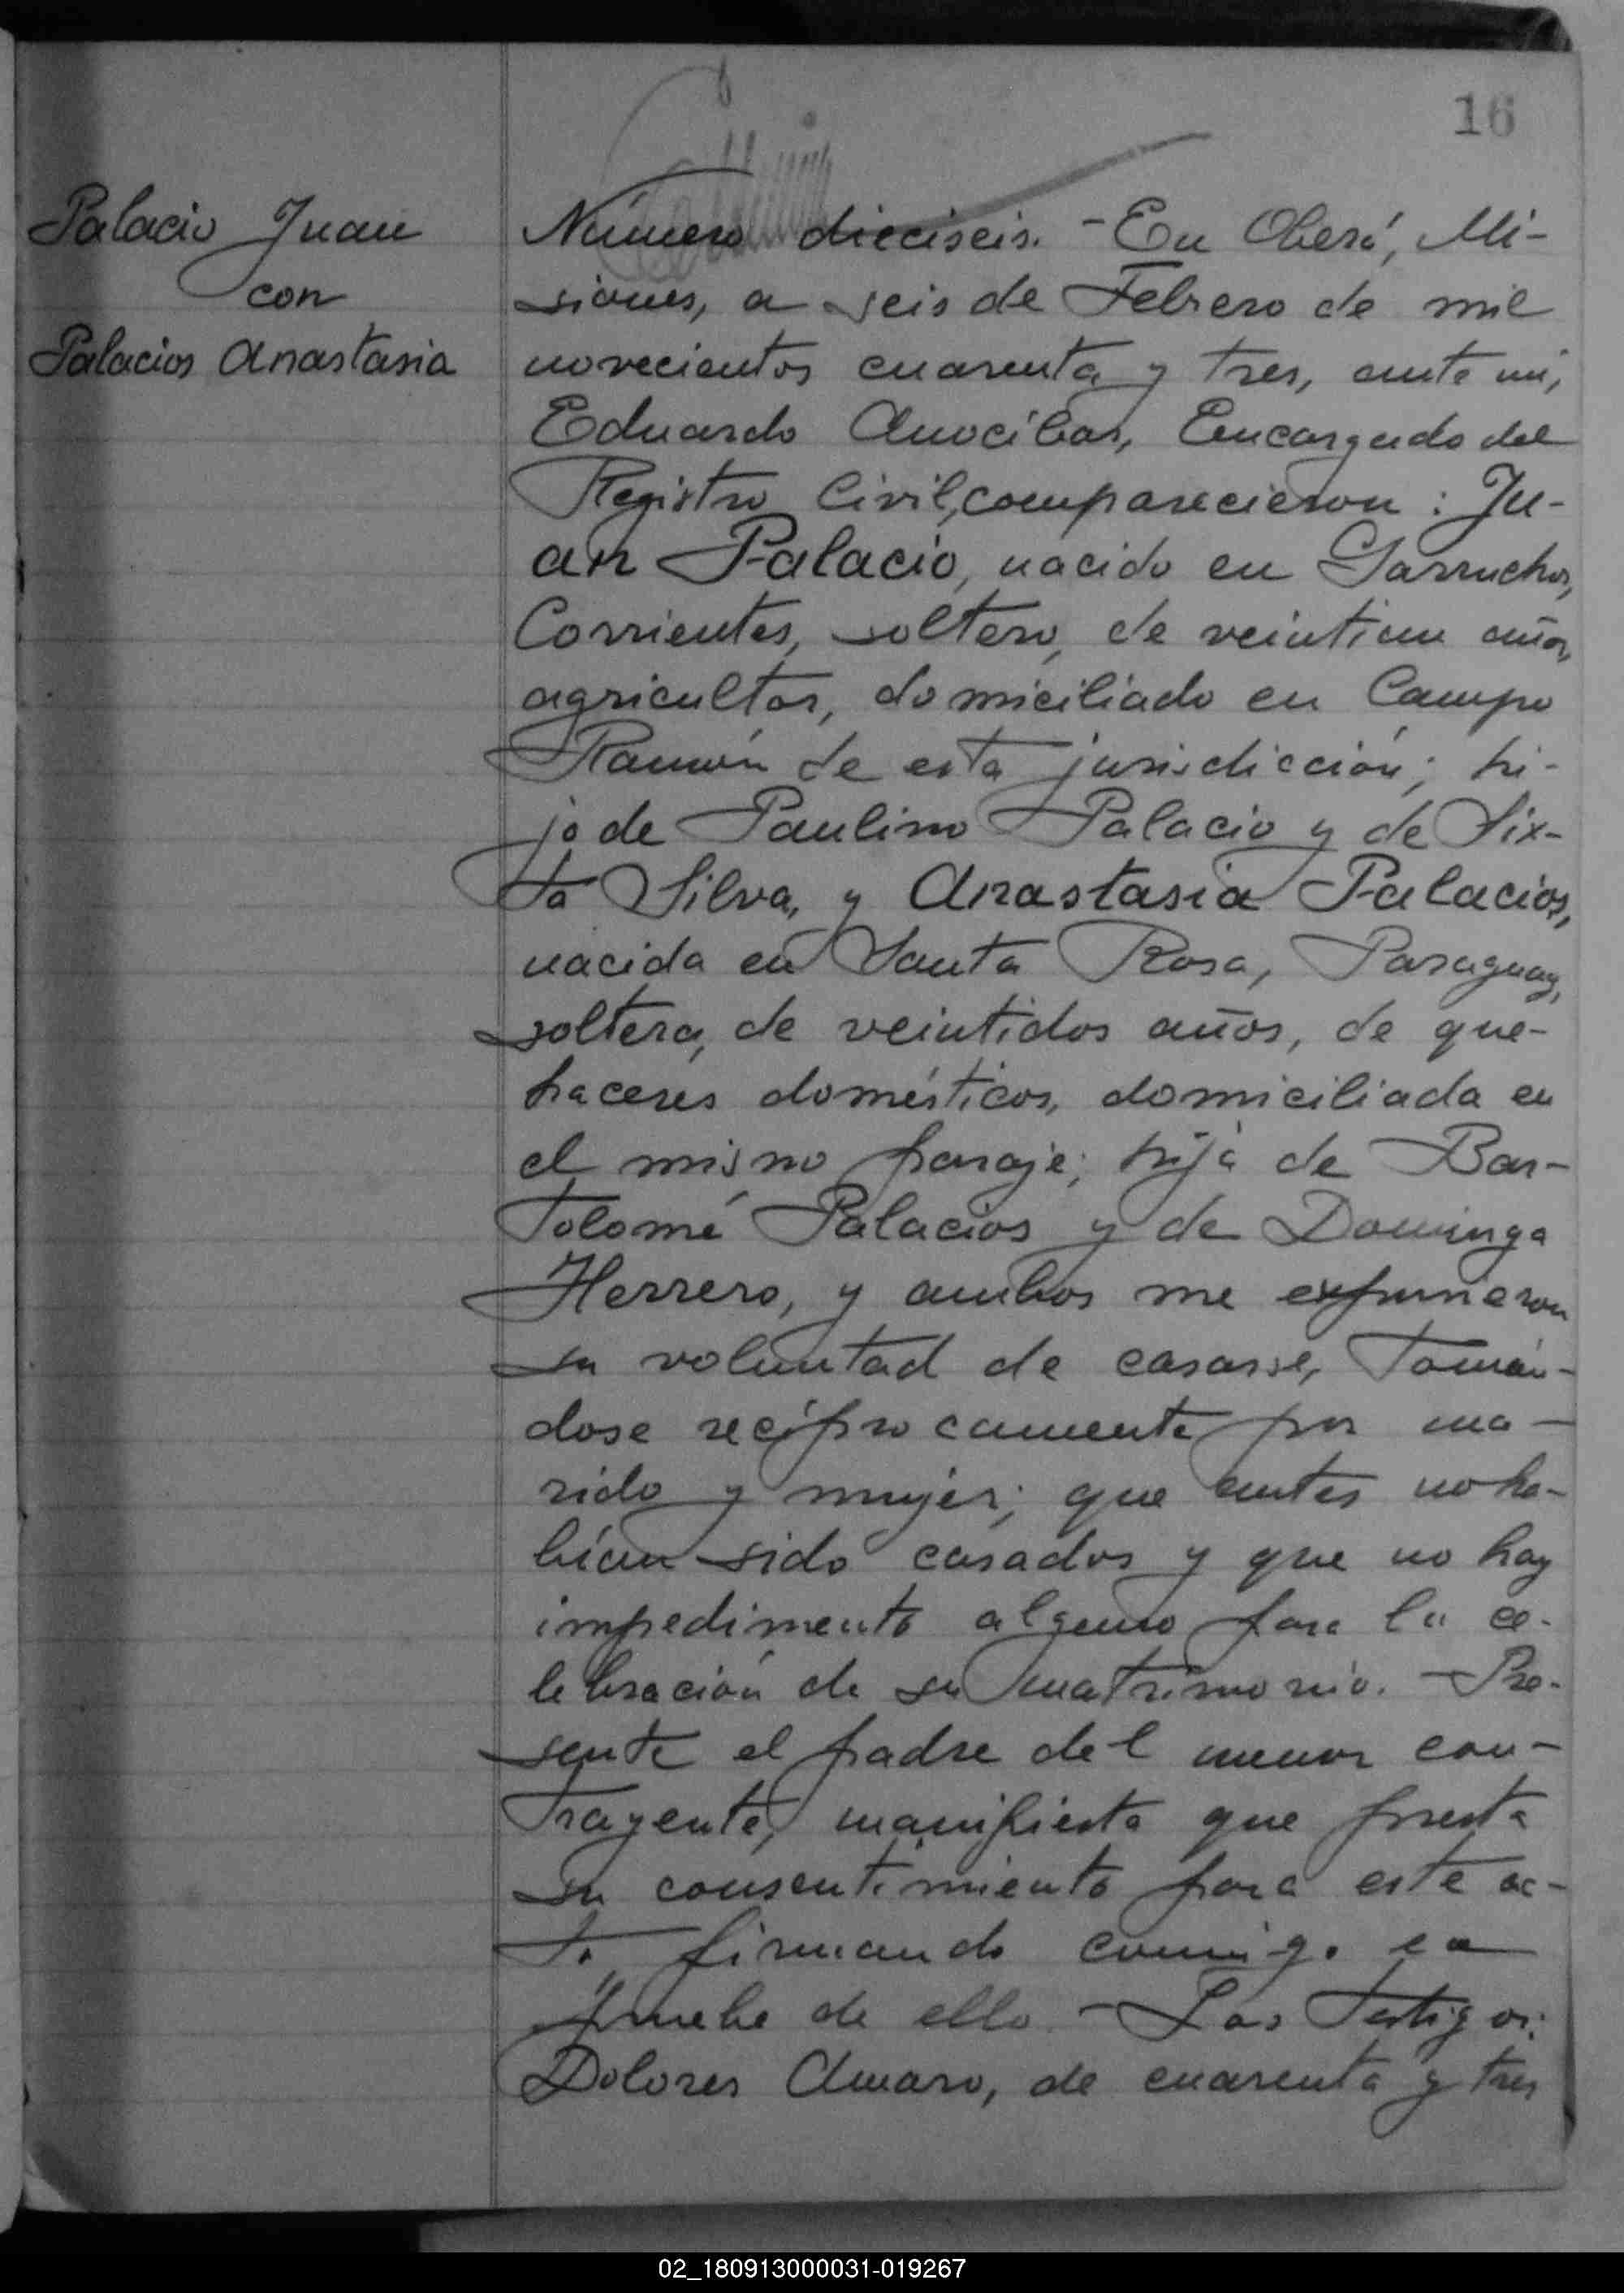 16
Palacio Juan
con
Palacios Anastasia
Número dieciseis. - En Oberá, Mi-
siones, a seis de Febrero de mil
novecientos cuarenta y tres, ante mi,
Eduardo Anocíbar, Encargado del
Registro Civil, comparecieron: Ju-
an Palacio, nacido en Garruchos,
Corrientes, soltero, de veintiun años,
agricultor, domiciliado en Campo
Ramón de esta jurisdicción; hi-
jo de Paulino Palacio y de Six-
ta Silva, y Anastasia Palacios,
nacida en Santa Rosa, Paraguay,
soltera, de veintidos años, de que-
haceres domésticos, domiciliada en
el mismo paraje; hija de Bar-
tolomé Palacios y de Dominga
Herrero, y ambos me expusieron
su voluntad de casarse, tomán-
dose recíprocamente por ma-
rido y mujer; que antes no ha-
bían sido casados y que no hay
impedimento alguno para la ce-
lebración de su matrimonio. - Pre-
sente el padre del menor con-
trayente, manifiesta que presta
su consentimiento para este ac-
to firmando conmigo en
prueba de ello. - Los testigos:
Dolores Amaro, de cuarenta y tres
02_180913000031-019267